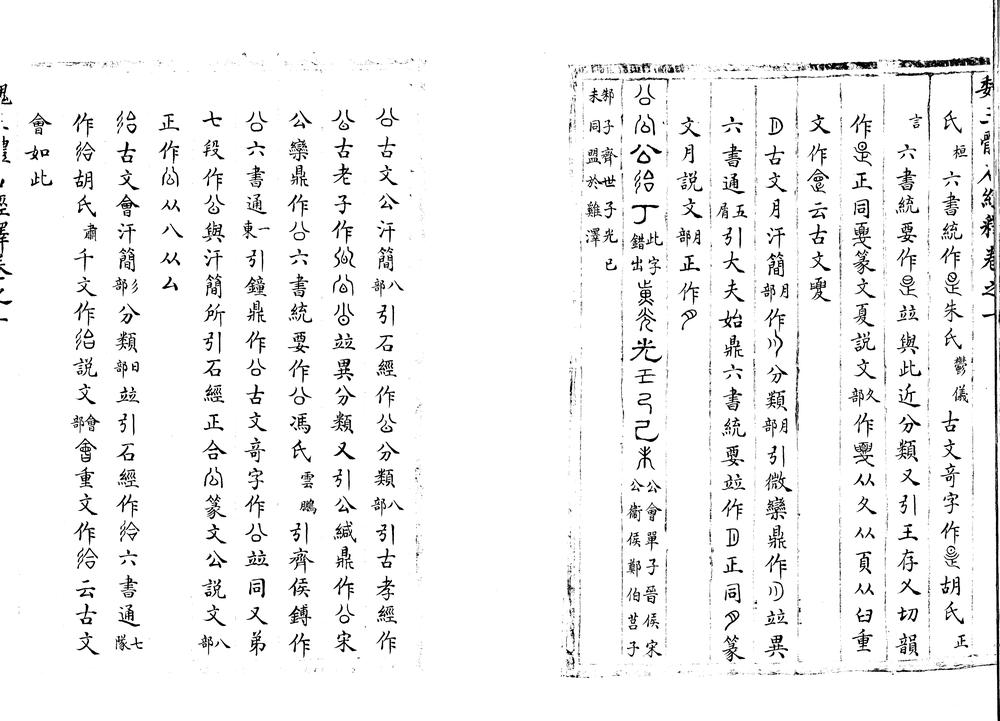 氏桓六書統作是朱氏鬱儀古文奇字作是胡氏正
言六書統要作是竝與此近分類又引王存乂切韻
作是正同夓篆文夏說文夊部作夓从夊从頁从臼重
文作會云古文夓
古文月汗簡月部作分類月部引微欒鼎作竝異
六書通五屑引大夫始鼎六書統要竝作正同篆
文月說文月部正作
公公公給丁此字錯出光壬己未公會單子晉侯宋公衞侯鄭伯莒子
邾子齊世子光己未同盟於雞澤
公古文公汗簡八部引石經作公分類八部引古孝經作
公古老子作竝異分類又引公緘鼎作公宋
公欒鼎作公六書統要作公馮氏雲鵬引齊侯鎛作
公六書通一東引鐘鼎作公古文奇字作公竝同又弟
七段作公與汗簡所引石經正合公篆文公說文八部
正作公从八从厶
給古文會汗簡彡部分類日部竝引石經作給六書通七隊
作給胡氏肅千文作給說文會部會重文作給云古文
會如此